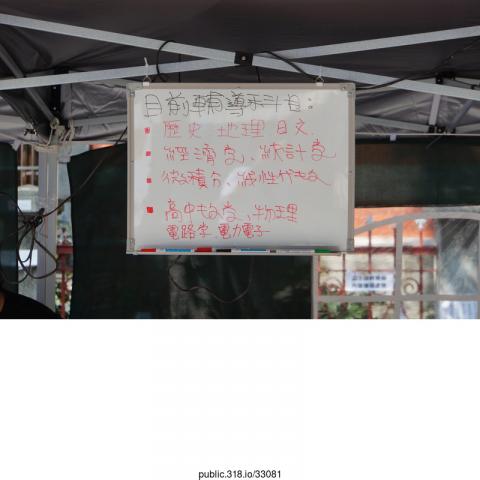 目前輔導科目：
歷史 地理 日文
經濟学、統計学
微積分、線性代数
高中数学、物理
電路学、電力電子
public.318.io/33081